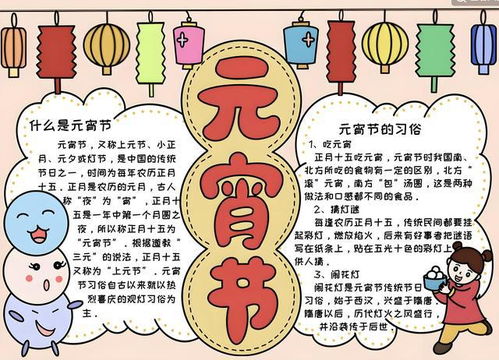 元宵节
什么是元宵节
元宵节，又称上元节、小正
月、元夕或灯节，是中国的传统
节日之一，时间为每年农历正月
十五，正月是农历的元月，古人
称“夜”为“宵”，正月十
五是一年中第一个月圆之
夜，所以称正月十五为
“元宵节”。根据道教“
三元”的说法，正月十五
又称为“上元节”。元宵
节习俗自古以来就以热
烈喜庆的观灯习俗为
主。
元宵节的习俗
1、吃元宵
正月十五吃元宵，元宵节时我国南、
北方所吃的食物有一定的区别，北方“
滚”元宵，南方“包”汤圆，这是两种
做法和口感都不同的食品。
2、猜灯谜
每逢农历正月十五，传统民间都要挂
起彩灯，燃放焰火，后来有好事者把谜语
写在纸条上，贴在五光十色的彩灯上
供人猜。
3、闹花灯
闹花灯是元宵节传统节日
习俗，始于西汉，兴盛于隋唐
隋唐以后，历代灯火之风盛行，
并沿袭传于后世。